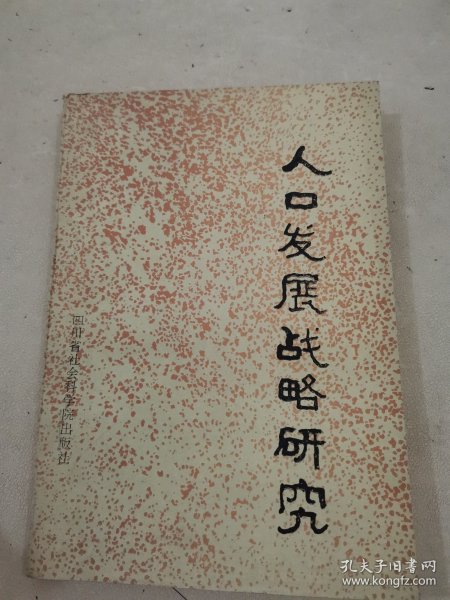 人口发展战略研究
四川省社会科学院出版社
孔夫子旧书网
www.kongfz.com